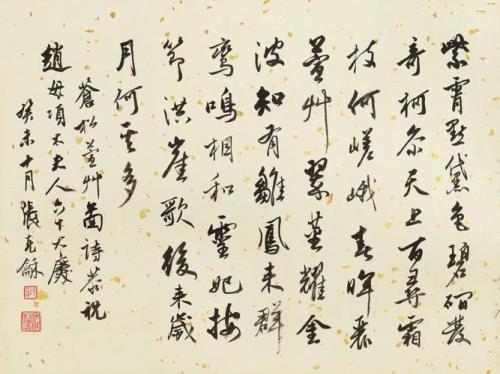 紫霄點黛色碧磵發
奇柯參天上百尋霜
枝何嵯峨春暉裊
萱艸翠莖耀金
波知有雛鳳來群
鸞鳴相和靈妃按
節洪崖歌後來歲
月何其多
蒼松萱艸圖詩恭祝
趙母項太夫人六十大慶
癸未十月張克龢